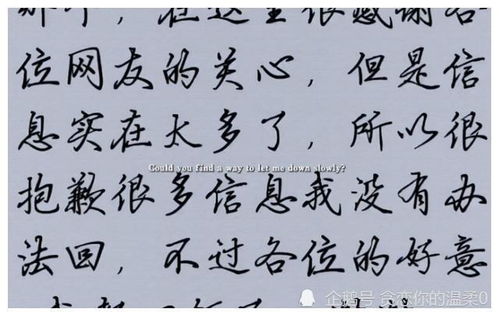 在这里很感谢各
位网友的关心，但是信
息实在太多了，所以很
Could you find a way to let me down slowly?
抱歉很多信息我没有办
法回，不过各位的好意
企鹅号 贪恋你的温柔0